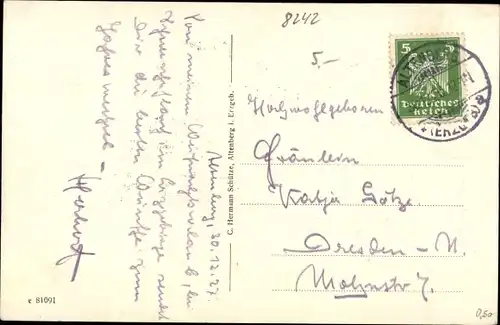 8242
5.-
Altenberg, 30.12.27.
Von meinem Weihnachtsurlaub, bei
im Erzgebirge sendet
Dir die besten Wünsche zum
Jahreswechsel -
Herbert
C. Hermann Schütze, Altenberg i. Erzgeb.
c 81091
5
Deutsches
Reich
(ERZGEB.)
Hochwohlgeboren
Fräulein
Katja Götze.
Dresden-N.
Molzustr 7.
0,50